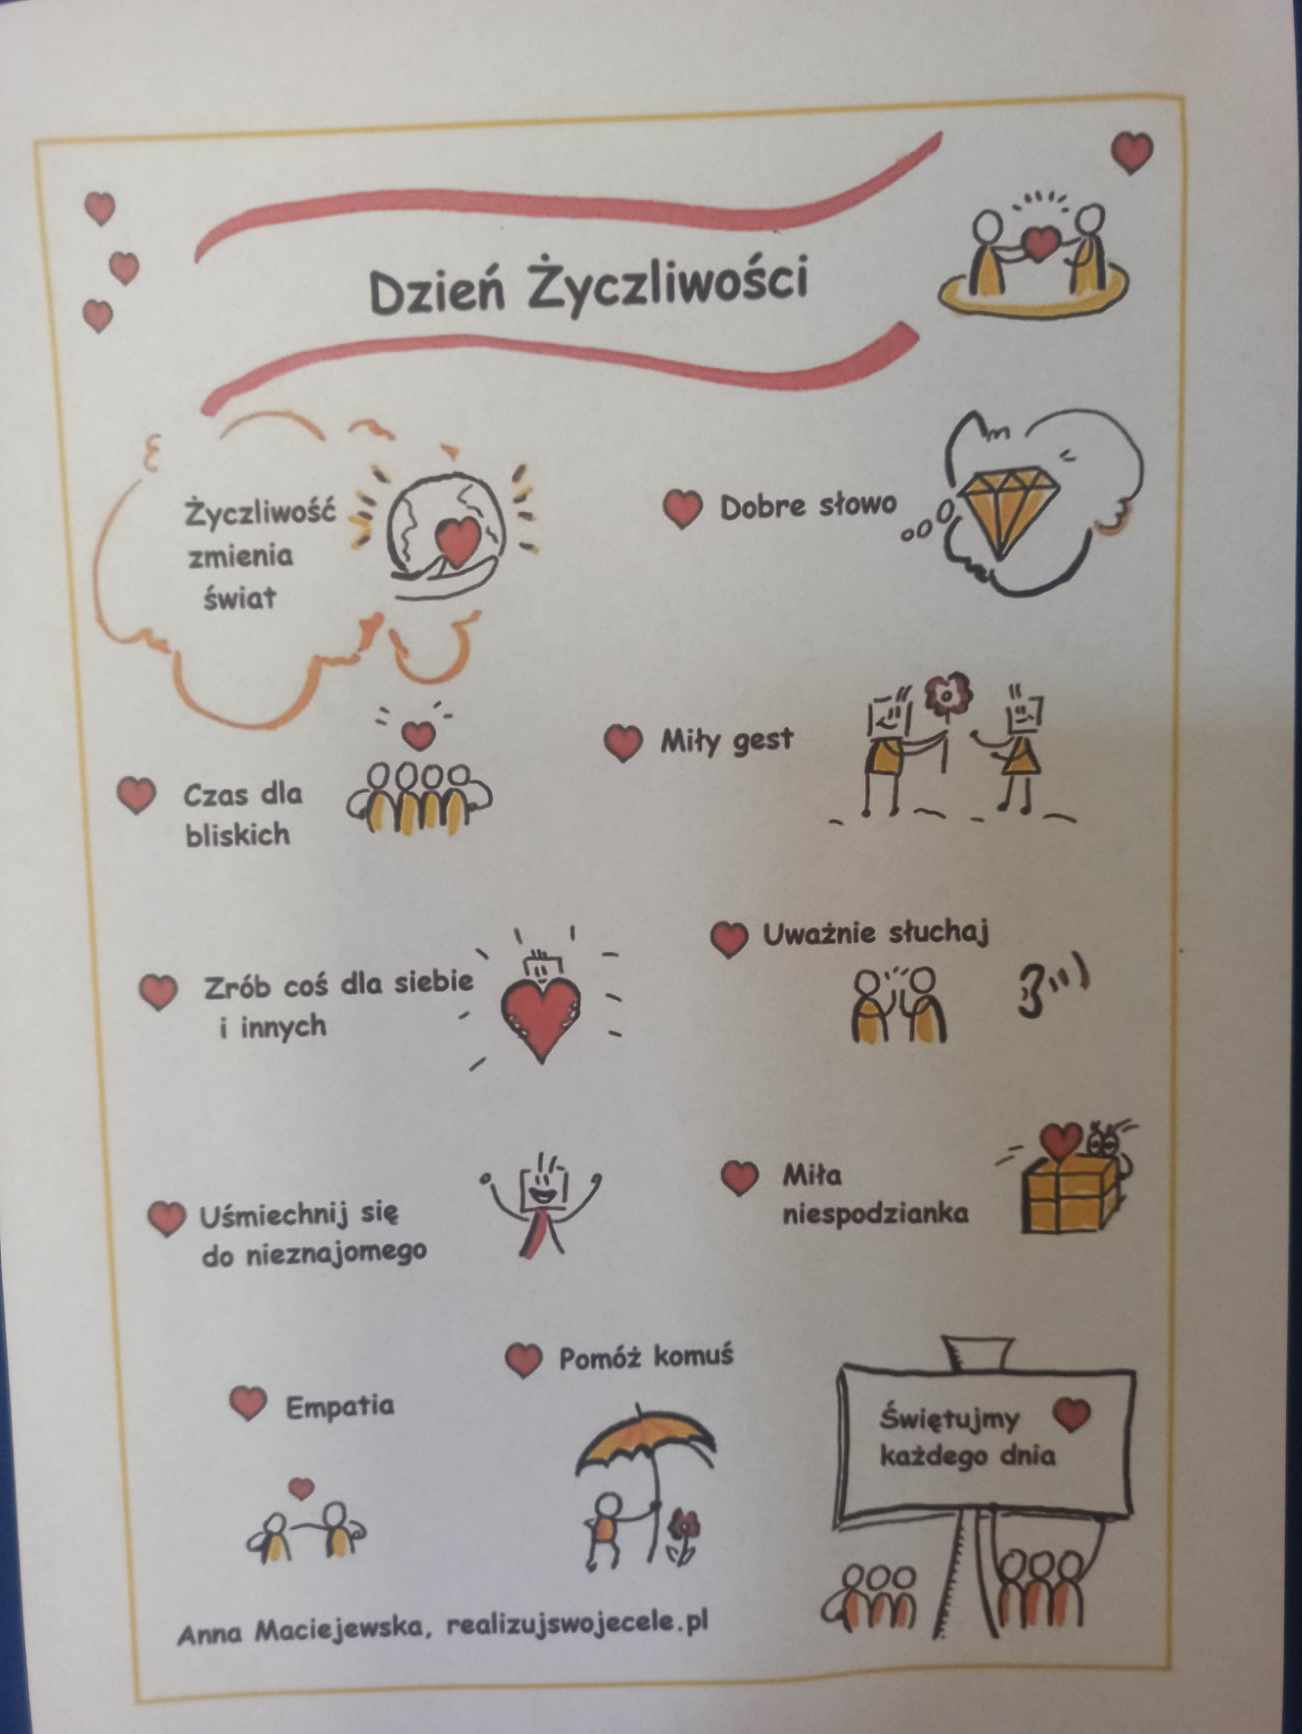 Dzień Życzliwości
Życzliwość
zmienia
świat
Dobre słowo
Czas dla
bliskich
Miły gest
Zrób coś dla siebie
i innych
Uważnie słuchaj
Uśmiechnij się
do nieznajomego
Miła
niespodzianka
Empatia
Pomóż komuś
Świętujmy
każdego dnia
Anna Maciejewska, realizujswojecele.pl